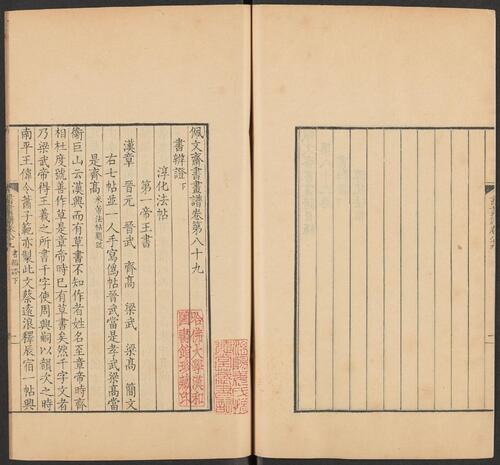 佩文齋書畫譜卷第八十九
書辨證下
淳化法帖
第一帝王書
漢章 晉元 晉武 齊高 梁武 梁高 簡文
右七帖並一人手寫僞帖晉武當是孝武梁高當
是齊高米芾法帖題跋
衞巨山云漢興而有草書不知作者姓名至章帝時齊
相杜度號善作草是章帝時已有草書矣然千字文者
乃梁武帝得王羲之所書千字使周興嗣以韻次之時
南平王偉令蕭子範亦製此文蔡遠浪釋辰宿一帖興
哈佛大學漢和
圖書館珍藏印